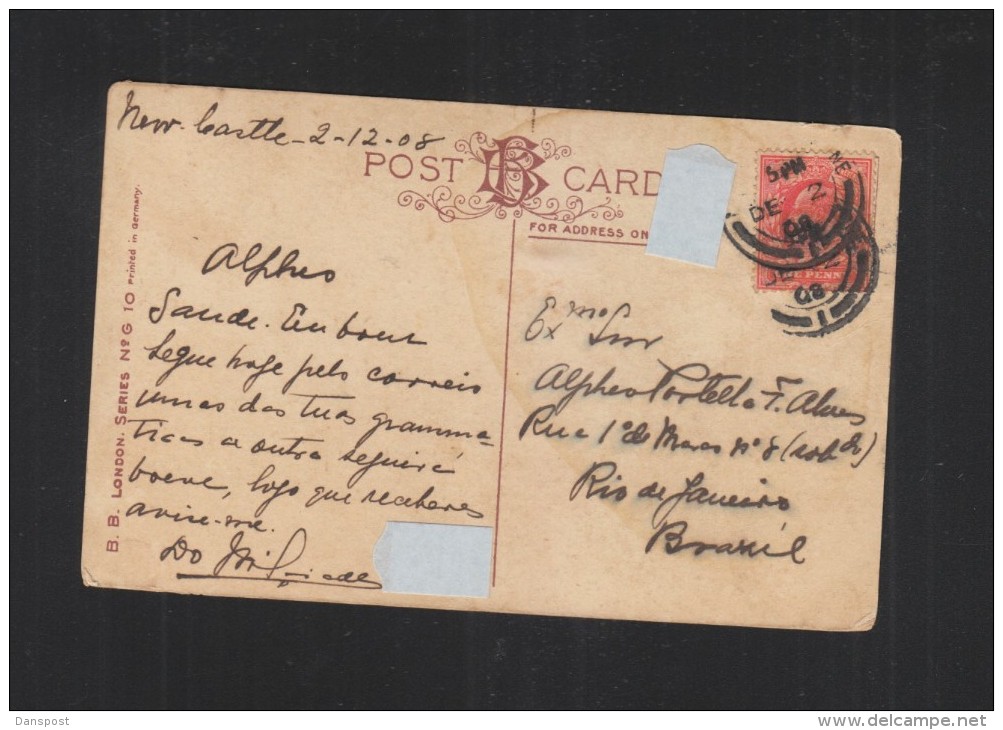 New-Castle-2-12-08
POST BB CARD
FOR ADDRESS ON
B. B. LONDON. SERIES Nº G 10 Printed in Germany.
5 PM
DE 2
08
NE
08
1
PENN
Alpheo
Saude. Em
segue hoje pelo correio
umas das tuas gramma-
ticas a outra seguirá
breve, logo que receberes
avise-me.
Do
Exmo Snr
Alpheo Portella F. Alves
Rua 1º de Março nº 8 (sobdo)
Rio de Janeiro
Brazil
Danspost
www.delcampe.net